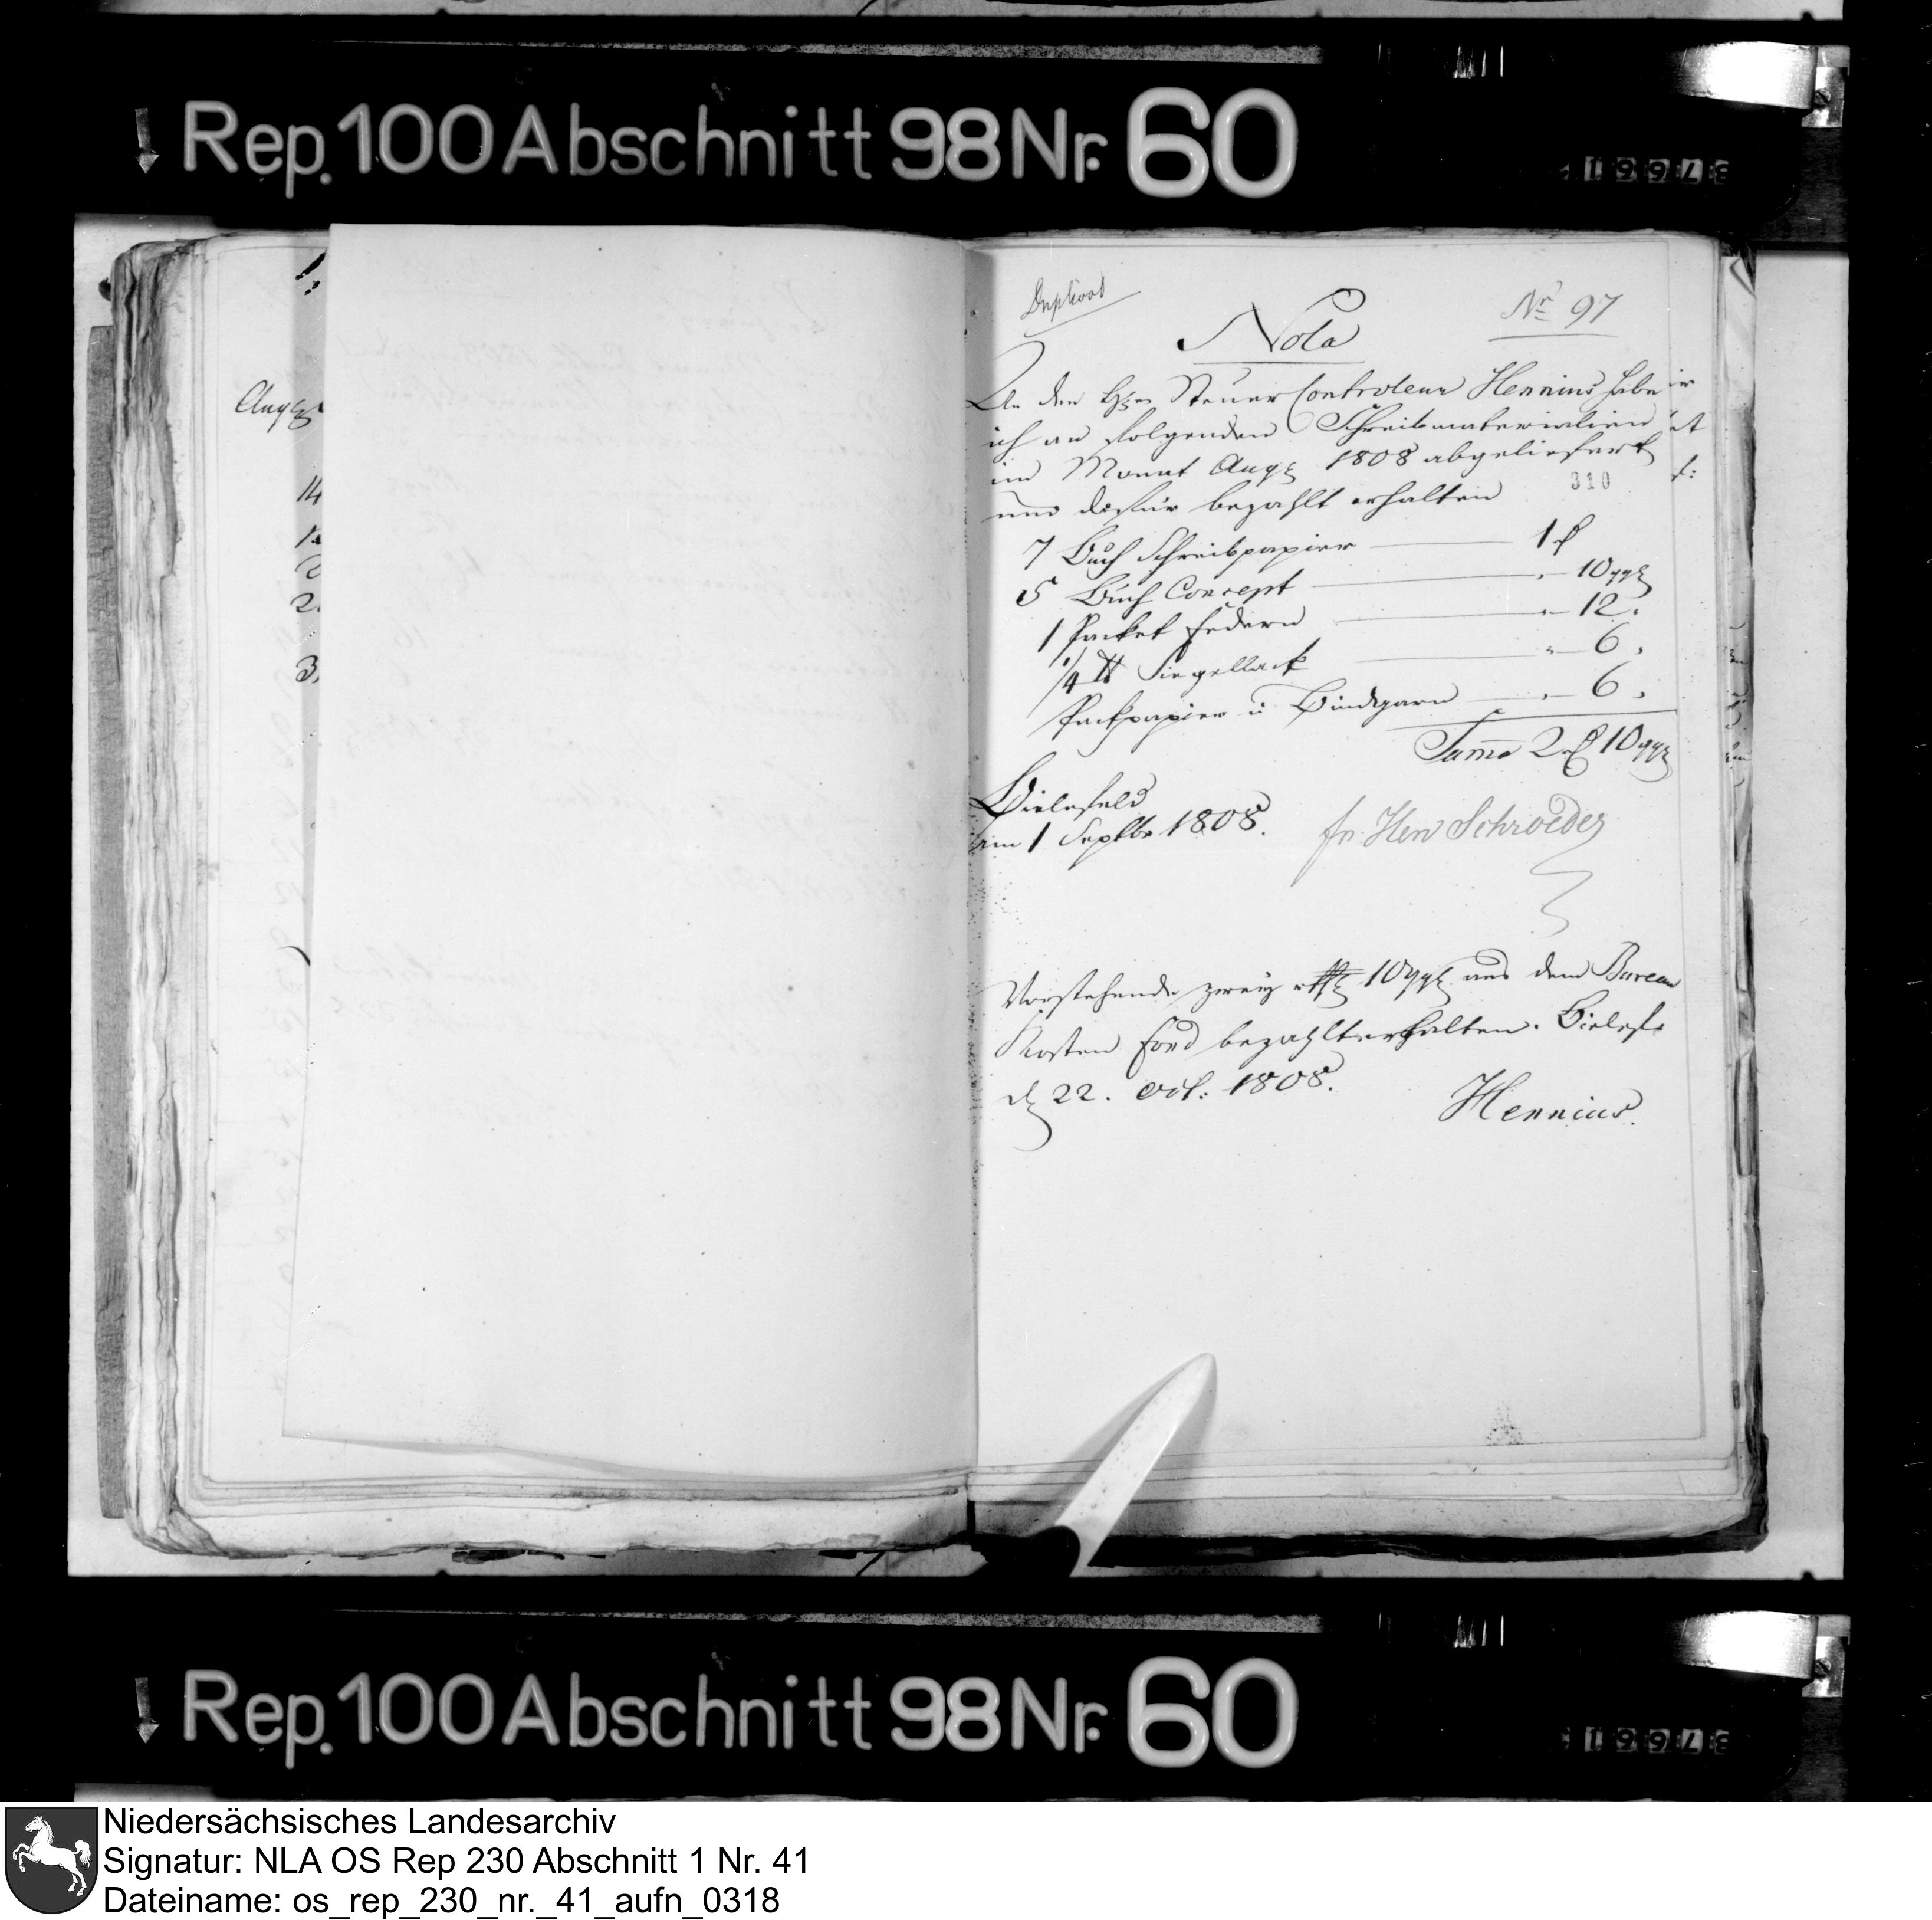 Rep. 100 Abschnitt 98 Nr. 60
Aug
14
2.
3,
Duplicat
Nr 97
Nota
An den H Steuer Controleur Hennius habe
ich an folgenden Schreibmaterialien
im Monat Aug 1808 abgeliefert
310
und dafür bezahlt erhalten
7 Buch Schreibpapier — 1
5 Buch Concept — 10 ggr
1 Packet Federn — 12.
1/4 ℔ Siegellack — 6.
Packpapier u Bindgarn — 6.
Summa 2 10 ggr
Bielefeld
am 1 Septbr 1808.
Schroeder
Vorstehende zweÿ 10 ggr aus dem Bureau
Kosten Fond bezahlt erhalten. Bielef.
d 22. Oct: 1808.
Hennius.
Rep. 100 Abschnitt 98 Nr. 60
Niedersächsisches Landesarchiv
Signatur: NLA OS Rep 230 Abschnitt 1 Nr. 41
Dateiname: os_rep_230_nr._41_aufn_0318